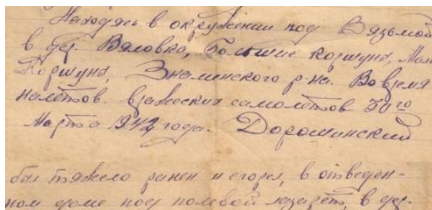 Находясь в окружении под Вязьмой
в дер. Вяловка, Большие Коршуны, Мал.
Коршуны, Знаменского р-на. Во время
налётов вражеских самолётов 30го
Марта 1942 года. Дорошинский
был тяжело ранен и сгорел, в отведен-
ном доме под полевой лазарет, в дер.